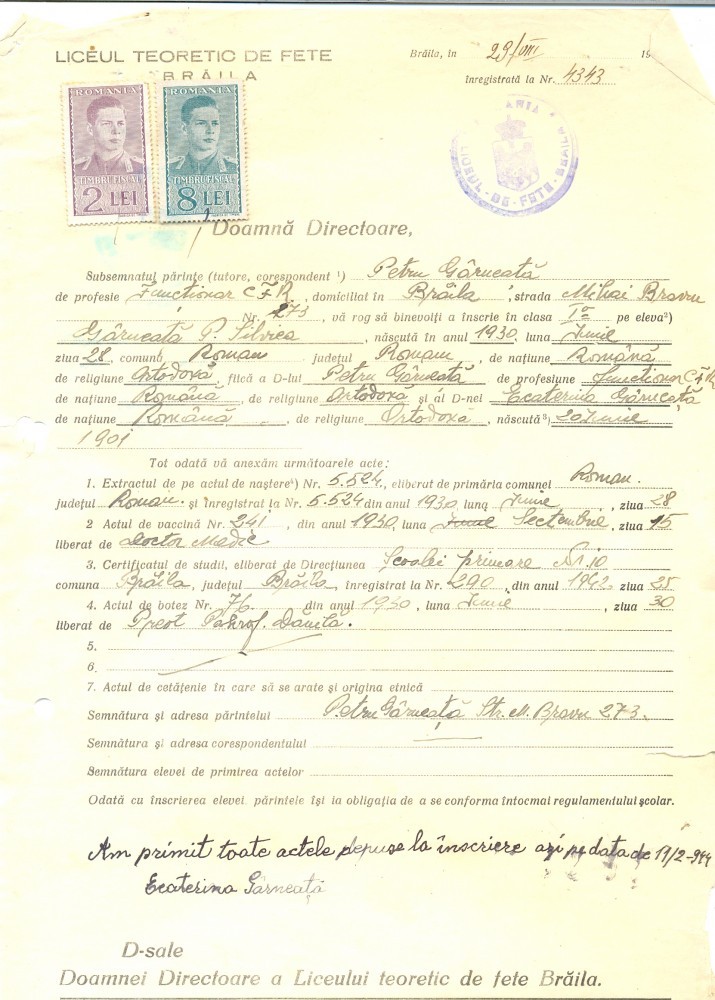 LICEUL TEORETIC DE FETE
BRĂILA
Brăila, în 29/VIII 19
înregistrată la Nr. 4343
ROMANIA
TIMBRU FISCAL
2 LEI
ROMANIA
TIMBRU FISCAL
8 LEI
LICEUL-DE-FETE-BRĂILA
Doamnă Directoare,
Subsemnatul părinte (tutore, corespondent ¹) Petru Gârneată
de profesie Functionar C.F.R, domiciliat în Brăila, strada Mihai Bravu
Nr. 273, vă rog să binevoiți a înscrie în clasa I-a pe eleva²)
Gârneată P. Silvica, născută în anul 1930, luna Iunie
ziua 28, comuna Roman județul Roman, de națiune Română
de religiune Ortodoxă, fiică a D-lui Petru Gârneată de profesiune functionar C.F.R,
de națiune Română, de religiune Ortodoxă și al D-nei Ecaterina Gârneată
de națiune Română, de religiune Ortodoxă, născută ³) Iunie
1901
Tot odată vă anexăm următoarele acte:
1. Extractul de pe actul de naștere⁴) Nr. 5.524, eliberat de primăria comunei Roman.
județul Roman. și înregistrat la Nr. 5.524 din anul 1930, luna Iunie, ziua 28
2 Actul de vaccină Nr. 241, din anul 1930, luna Iunie Sectembrie, ziua 15
liberat de Doctor Medic
3. Certificatul de studii, eliberat de Direcțiunea Școalei primare Nr. 10
comuna Brăila, județul Brăila, înregistrat la Nr. 290, din anul 1942, ziua 25
4. Actul de botez Nr. 76 din anul 1930, luna Iunie, ziua 30
liberat de Preot Danila.
5.
6.
7. Actul de cetățenie în care să se arate și origina etnică
Semnătura și adresa părintelui Petru Gârneață Str. M. Bravu 273.
Semnătura și adresa corespondentului
Semnătura elevei de primirea actelor
Odată cu înscrierea elevei, părintele își ia obligația de a se conforma întocmai regulamentului școlar.
Am primit toate actele depuse la înscriere azi pe data de 19/2-944
Ecaterina Gârneață
D-sale
Doamnei Directoare a Liceului teoretic de fete Brăila.